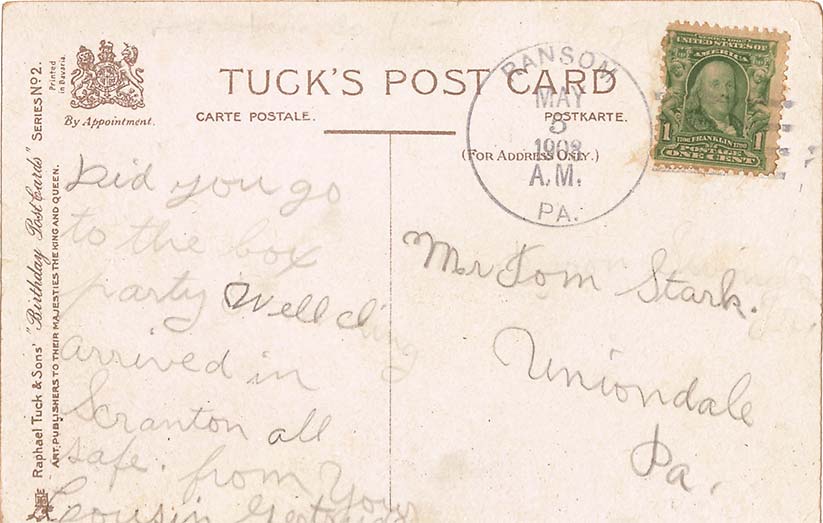 Raphael Tuck & Sons' "Birthday Post Cards" Series No 2.
ART PUBLISHERS TO THEIR MAJESTIES THE KING AND QUEEN.
Printed
in Bavaria.
By Appointment.
TUCK'S POST CARD
CARTE POSTALE.
POSTKARTE.
(FOR ADDRESS ONLY.)
RANSOM
MAY
1908
A.M.
PA.
UNITED STATES OF
AMERICA
1 FRANKLIN 1
POSTAGE
ONE CENT
Did you go
to the box
party Well
arrived in
Scranton all
safe. from your
Cousin Gertrude
Mr Tom Stark.
Uniondale
Pa.